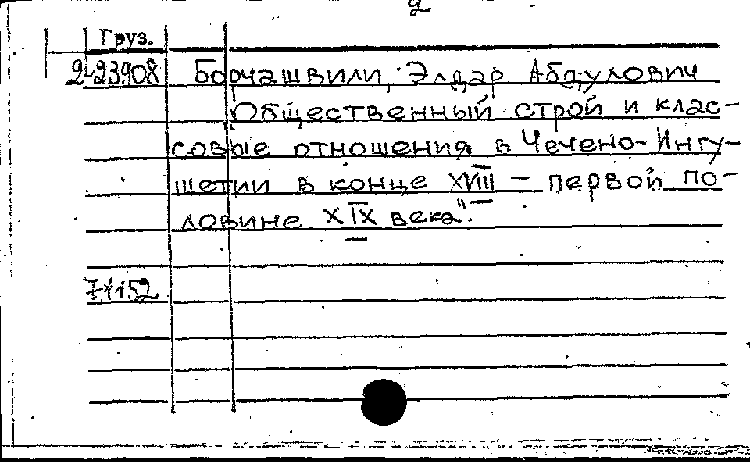 2
Груз.
2-23908 Борчашвили, Элдар Абдулович
Общественный строй и клас-
совые отношения в Чечено-Ингу-
шетии в конце XVIII – первой по-
ловине XIX века".
71152